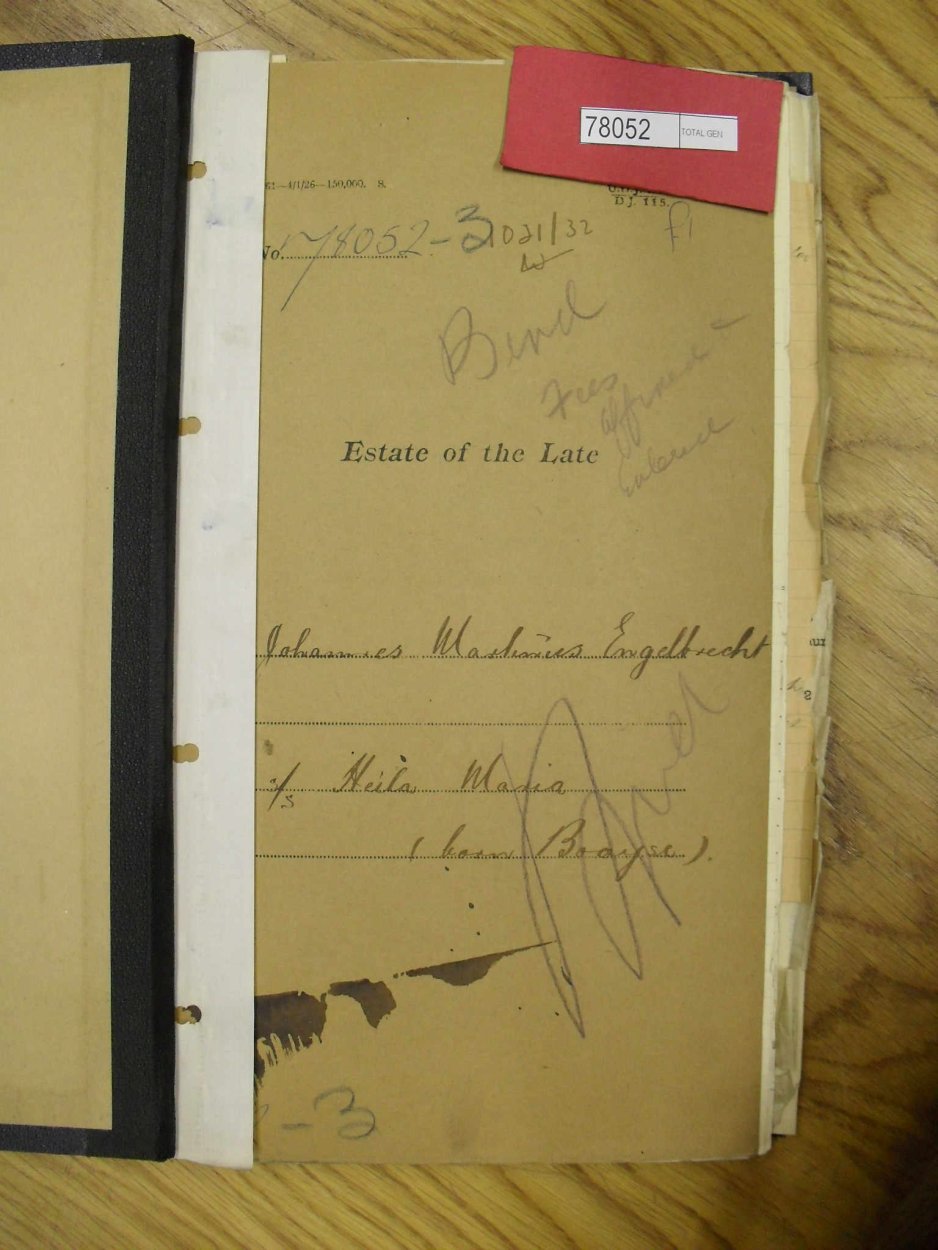 78052 TOTAL GEN
51—4/1/26—150,000. S.
D.J. 115.
£1
No. 78052-3 1021/32
Bend
Fees
affixed -
Estate of the Late
Johannes Martinus Engelbrecht
s/s Heila Maria
(born Booyse).
-3